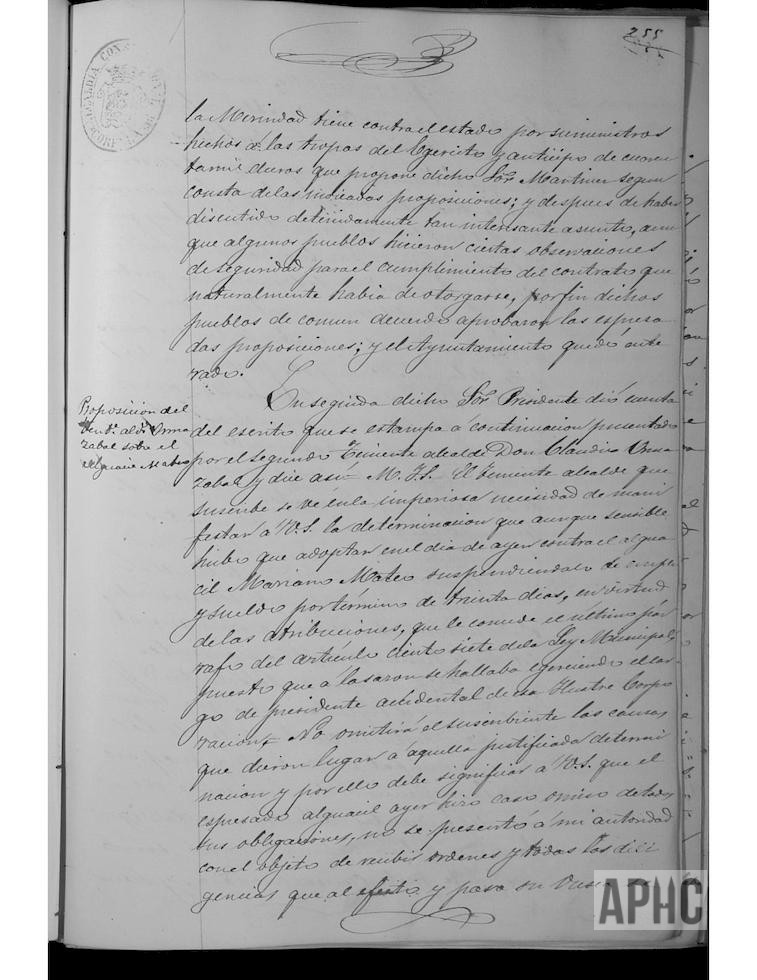 255
la Merindad tiene contra el estado por suministros
hechos á las tropas del Egercito y anticipo de cuaren
ta mil duros que propone dicho Sor. Martinez segun
consta de las indicadas proposiciones; y despues de haber
discutido detenidamente tan interesante asunto, aun
que algunos pueblos hicieron ciertas observaciones
de seguridad para el cumplimiento del contrato que
naturalmente habia de otorgarse, por fin dichos
pueblos de comun acuerdo aprobaron las espresa
das proposiciones; y el Ayuntamiento quedó ente
rado.
En seguida dicho Sor. Presidente dió cuenta
Proposicion del
alde Orma
zabal sobre el
alguacil Mateo
del escrito que se estampa á continuacion presentado
por el segundo Teniente alcalde Don Claudio Orma
zabal y dice asi= M. I. S. El teniente alcalde que
suscribe se vé en la imperiosa necesidad de mani
festar á V. S. la determinacion que aunque sensible
hubo que adoptar en el dia de ayer contra el algua
cil Mariano Mateo suspendiendole de empleo
y sueldo por término de treinta dias, en virtud
de las atribuciones, que le concede el ultimo pár
rafo del artículo ciento siete de la Ley Municipal,
puesto que á la sazon se hallaba egerciendo el car
go de presidente accidental de esa Ilustre Corpo
racion= No omitirá el suscribiente las causas
que dieron lugar á aquella justificada determi
nacion y por ello debe significar á V. S. que el
espresado alguacil ayer hizo caso omiso de todas
sus obligaciones, no se presentó á mi autoridad
con el objeto de recibir ordenes y todas las dili
gencias que al efecto y para su busca se
APHC